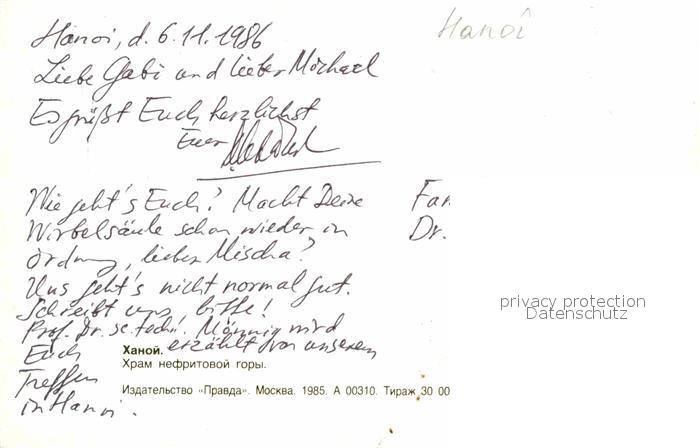 Hanoi, d. 6.11.1986
Hanoi
Liebe Gabi und lieber Michael
Es grüßt Euch herzlichst
Euer
Wie geht's Euch? Macht Deine
Wirbelsäule schon wieder in
Ordnung, lieber Mischa?
Uns geht's nicht normal gut.
Schreibt uns bitte!
Prof. Dr. sc. techn. Männig wird
Euch erzählt von unserem
Treffen
in Hanoi.
Fam
Dr.
privacy protection
Datenschutz
Ханой.
Храм нефритовой горы.
Издательство «Правда». Москва. 1985. А 00310. Тираж 30 00